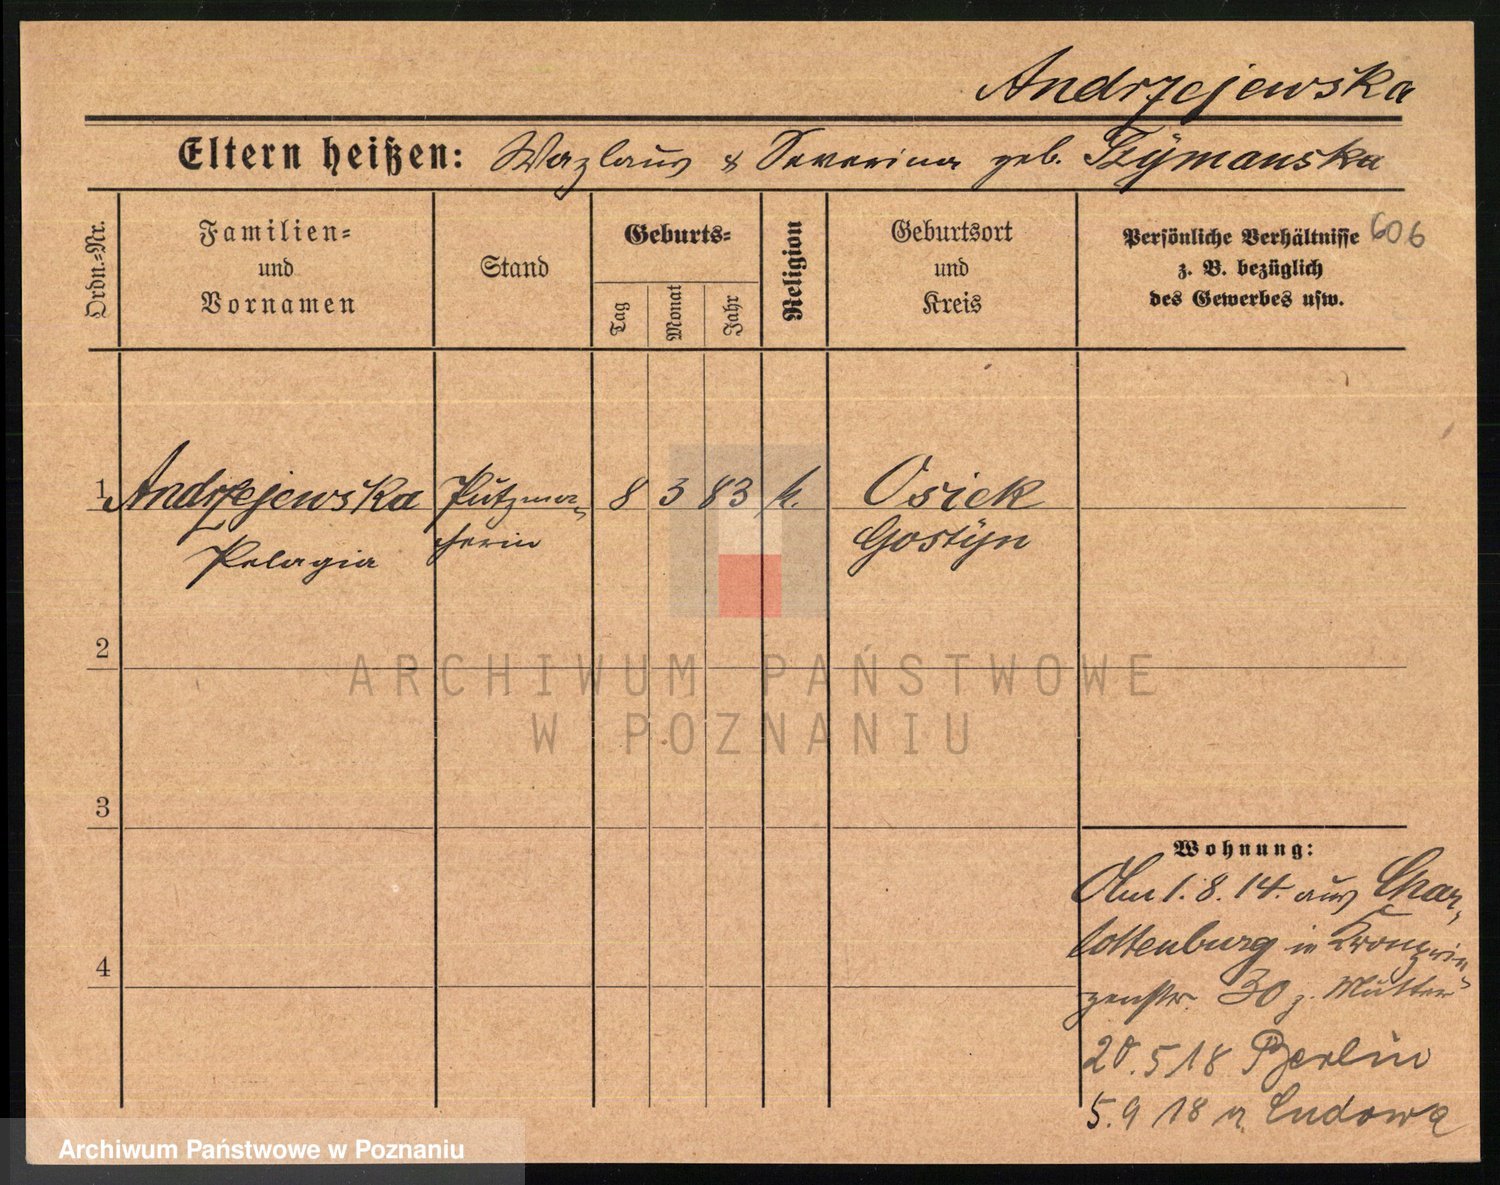 Andrzejewska
Eltern heißen: Wazlaus & Severina geb. Szymanska
Ordn.-Nr.
Familien-
und
Vornamen
Stand
Geburts-
Tag
Monat
Jahr
Religion
Geburtsort
und
Kreis
Persönliche Verhältnisse
z. B. bezüglich
des Gewerbes usw.
606
1 Andrzejewska Putzma- 8 3 83 k. Osiek
Pelagia cherin Gostyn
2
3
4
Wohnung:
Am 1. 8. 14. aus Char-
lottenburg in Kronprin-
zenstr. 30 z. Mutter
20. 5 18 Berlin
5. 9 18 n.
ARCHIWUM PAŃSTWOWE
W POZNANIU
Archiwum Państwowe w Poznaniu